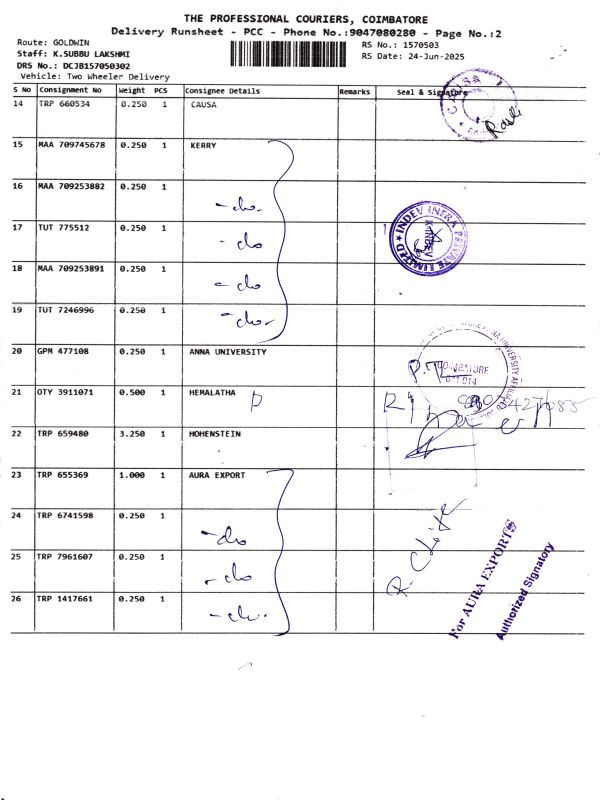 THE PROFESSIONAL COURIERS, COIMBATORE
Delivery Runsheet - PCC - Phone No.:9047080280 - Page No.:2
Route: GOLDWIN
Staff: K.SUBBU LAKSHMI
DRS No.: DCJB157050302
Vehicle: Two Wheeler Delivery
RS No.: 1570503
RS Date: 24-Jun-2025
S No Consignment No Weight PCS Consignee Details Remarks Seal & Signature
14 TRP 660534 0.250 1 CAUSA
15 MAA 709745678 0.250 1 KERRY
16 MAA 709253882 0.250 1 -do-
17 TUT 775512 0.250 1 -do
18 MAA 709253891 0.250 1 -do
19 TUT 7246996 0.250 1 -do-
INDEV INFRA PRIVATE LIMITED
20 GPM 477108 0.250 1 ANNA UNIVERSITY
COIMBATORE
641 014
21 OTY 3911071 0.500 1 HEMALATHA
22 TRP 659480 3.250 1 HOHENSTEIN
23 TRP 655369 1.000 1 AURA EXPORT
24 TRP 6741598 0.250 1 -do
25 TRP 7961607 0.250 1 -do
26 TRP 1417661 0.250 1 -do-
For AURA EXPORTS
Authorized Signatory